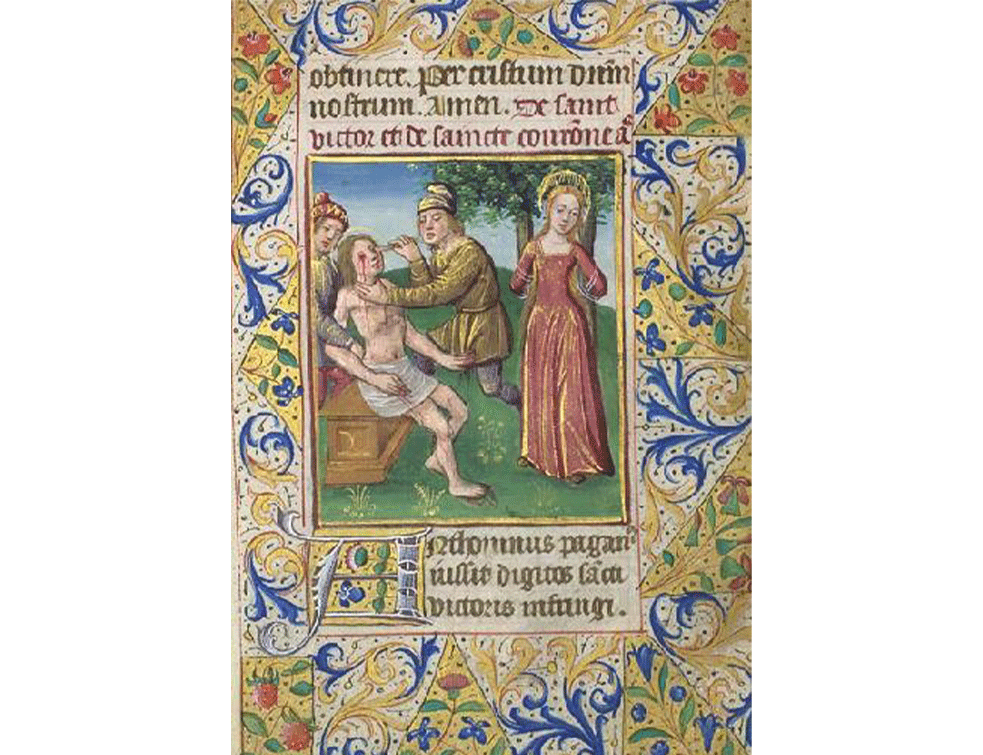 obtinere. Per cristum dn̄m
nostrum. Amen. De saint
victor et de saincte couronne aͣ
Anthoninus pagan⁹
iussit digitos sācti
victoris infringi.